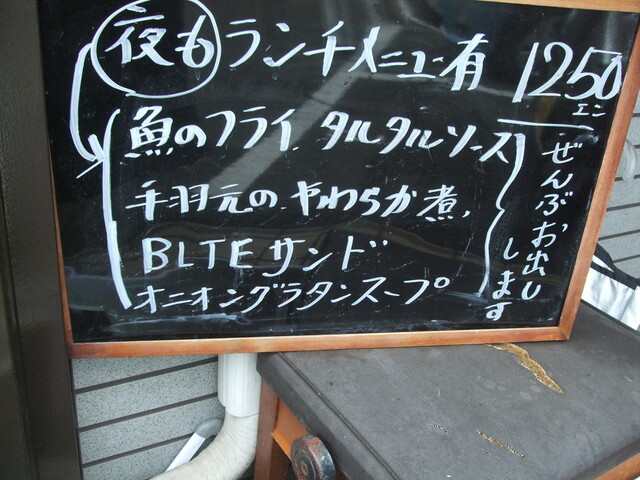 夜もランチメニュー有 1250エン
魚のフライ タルタルソース
手羽元の やわらか煮
BLTEサンド
オニオングラタンスープ
ぜんぶお出し
します